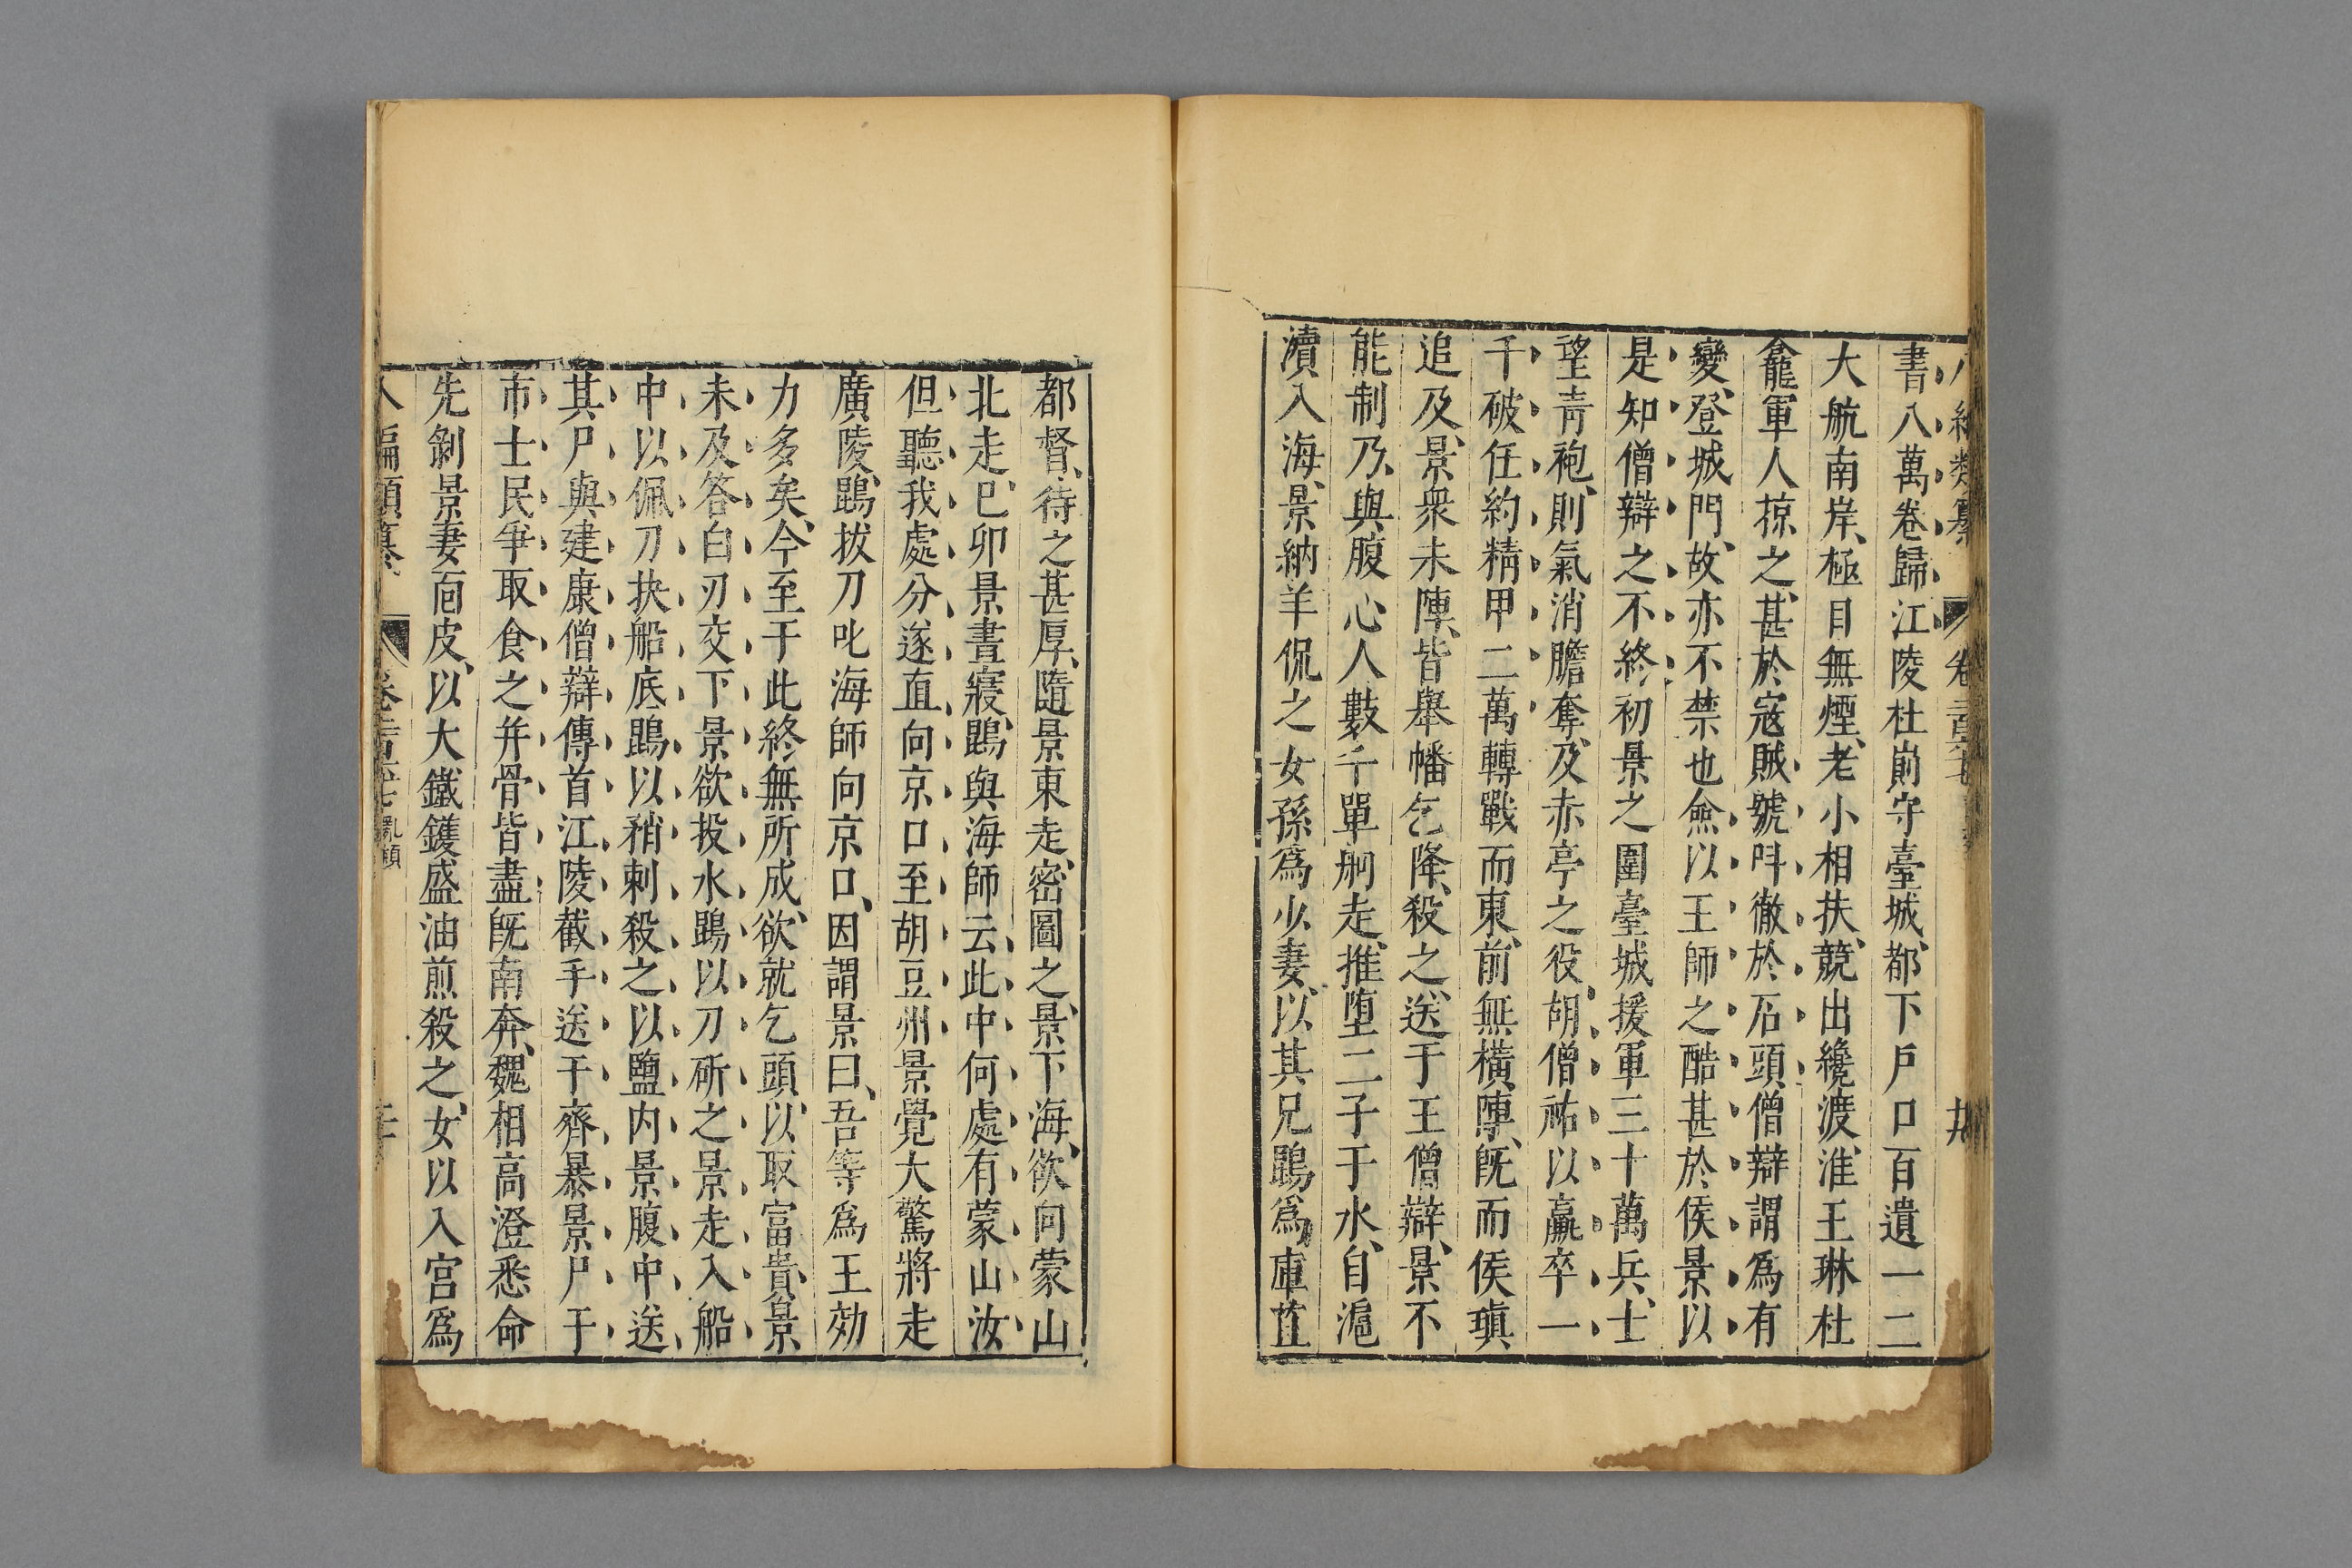 書八萬卷歸江陵杜崱守臺城、都下戶口百遺一二
大航南岸、極目無煙、老小相扶、競出纔渡、淮王琳杜
龕軍人掠之、甚於寇賊、號叫徹於石頭、僧辯謂爲有
變、登城門、故亦不禁也、僉以王師之酷、甚於侯景、以
是知僧辯之不終、初景之圍臺城、援軍三十萬兵、士
望青袍、則氣消膽奪、及赤亭之役、胡僧祐以羸卒一
千、破任約精甲二萬、轉戰而東、前無橫陣、旣而侯瑱
追及、景衆未陣、皆舉幡乞降、殺之、送于王僧辯、景不
能制、乃與腹心人數千單舸走、推墮二子于水、自滬
瀆入海、景納羊侃之女孫爲少妻、以其兄鵾爲庫直
都督、待之甚厚、隨景東走、密圖之、景下海、欲向蒙山
北走、巳卯景晝寢、鵾與海師云、此中何處有蒙山汝
但聽我處分、遂直向京口至胡豆州景覺大驚將走
廣陵、鵾拔刀叱海師向京口、因謂景曰、吾等爲王効
力多矣、今至于此終無所成、欲就乞頭、以取富貴、景
未及答白刃交下景欲投水鵾以刀斫之景走入船
中以佩刀抉船底鵾以矟刺殺之以鹽內景腹中送
其尸與建康僧辯傳首江陵截手送于齊暴景尸于
市士民爭取食之幷骨皆盡旣南奔、魏相高澄悉命
先剝景妻面皮、以大鐵鑊盛油煎殺之、女以入宮爲